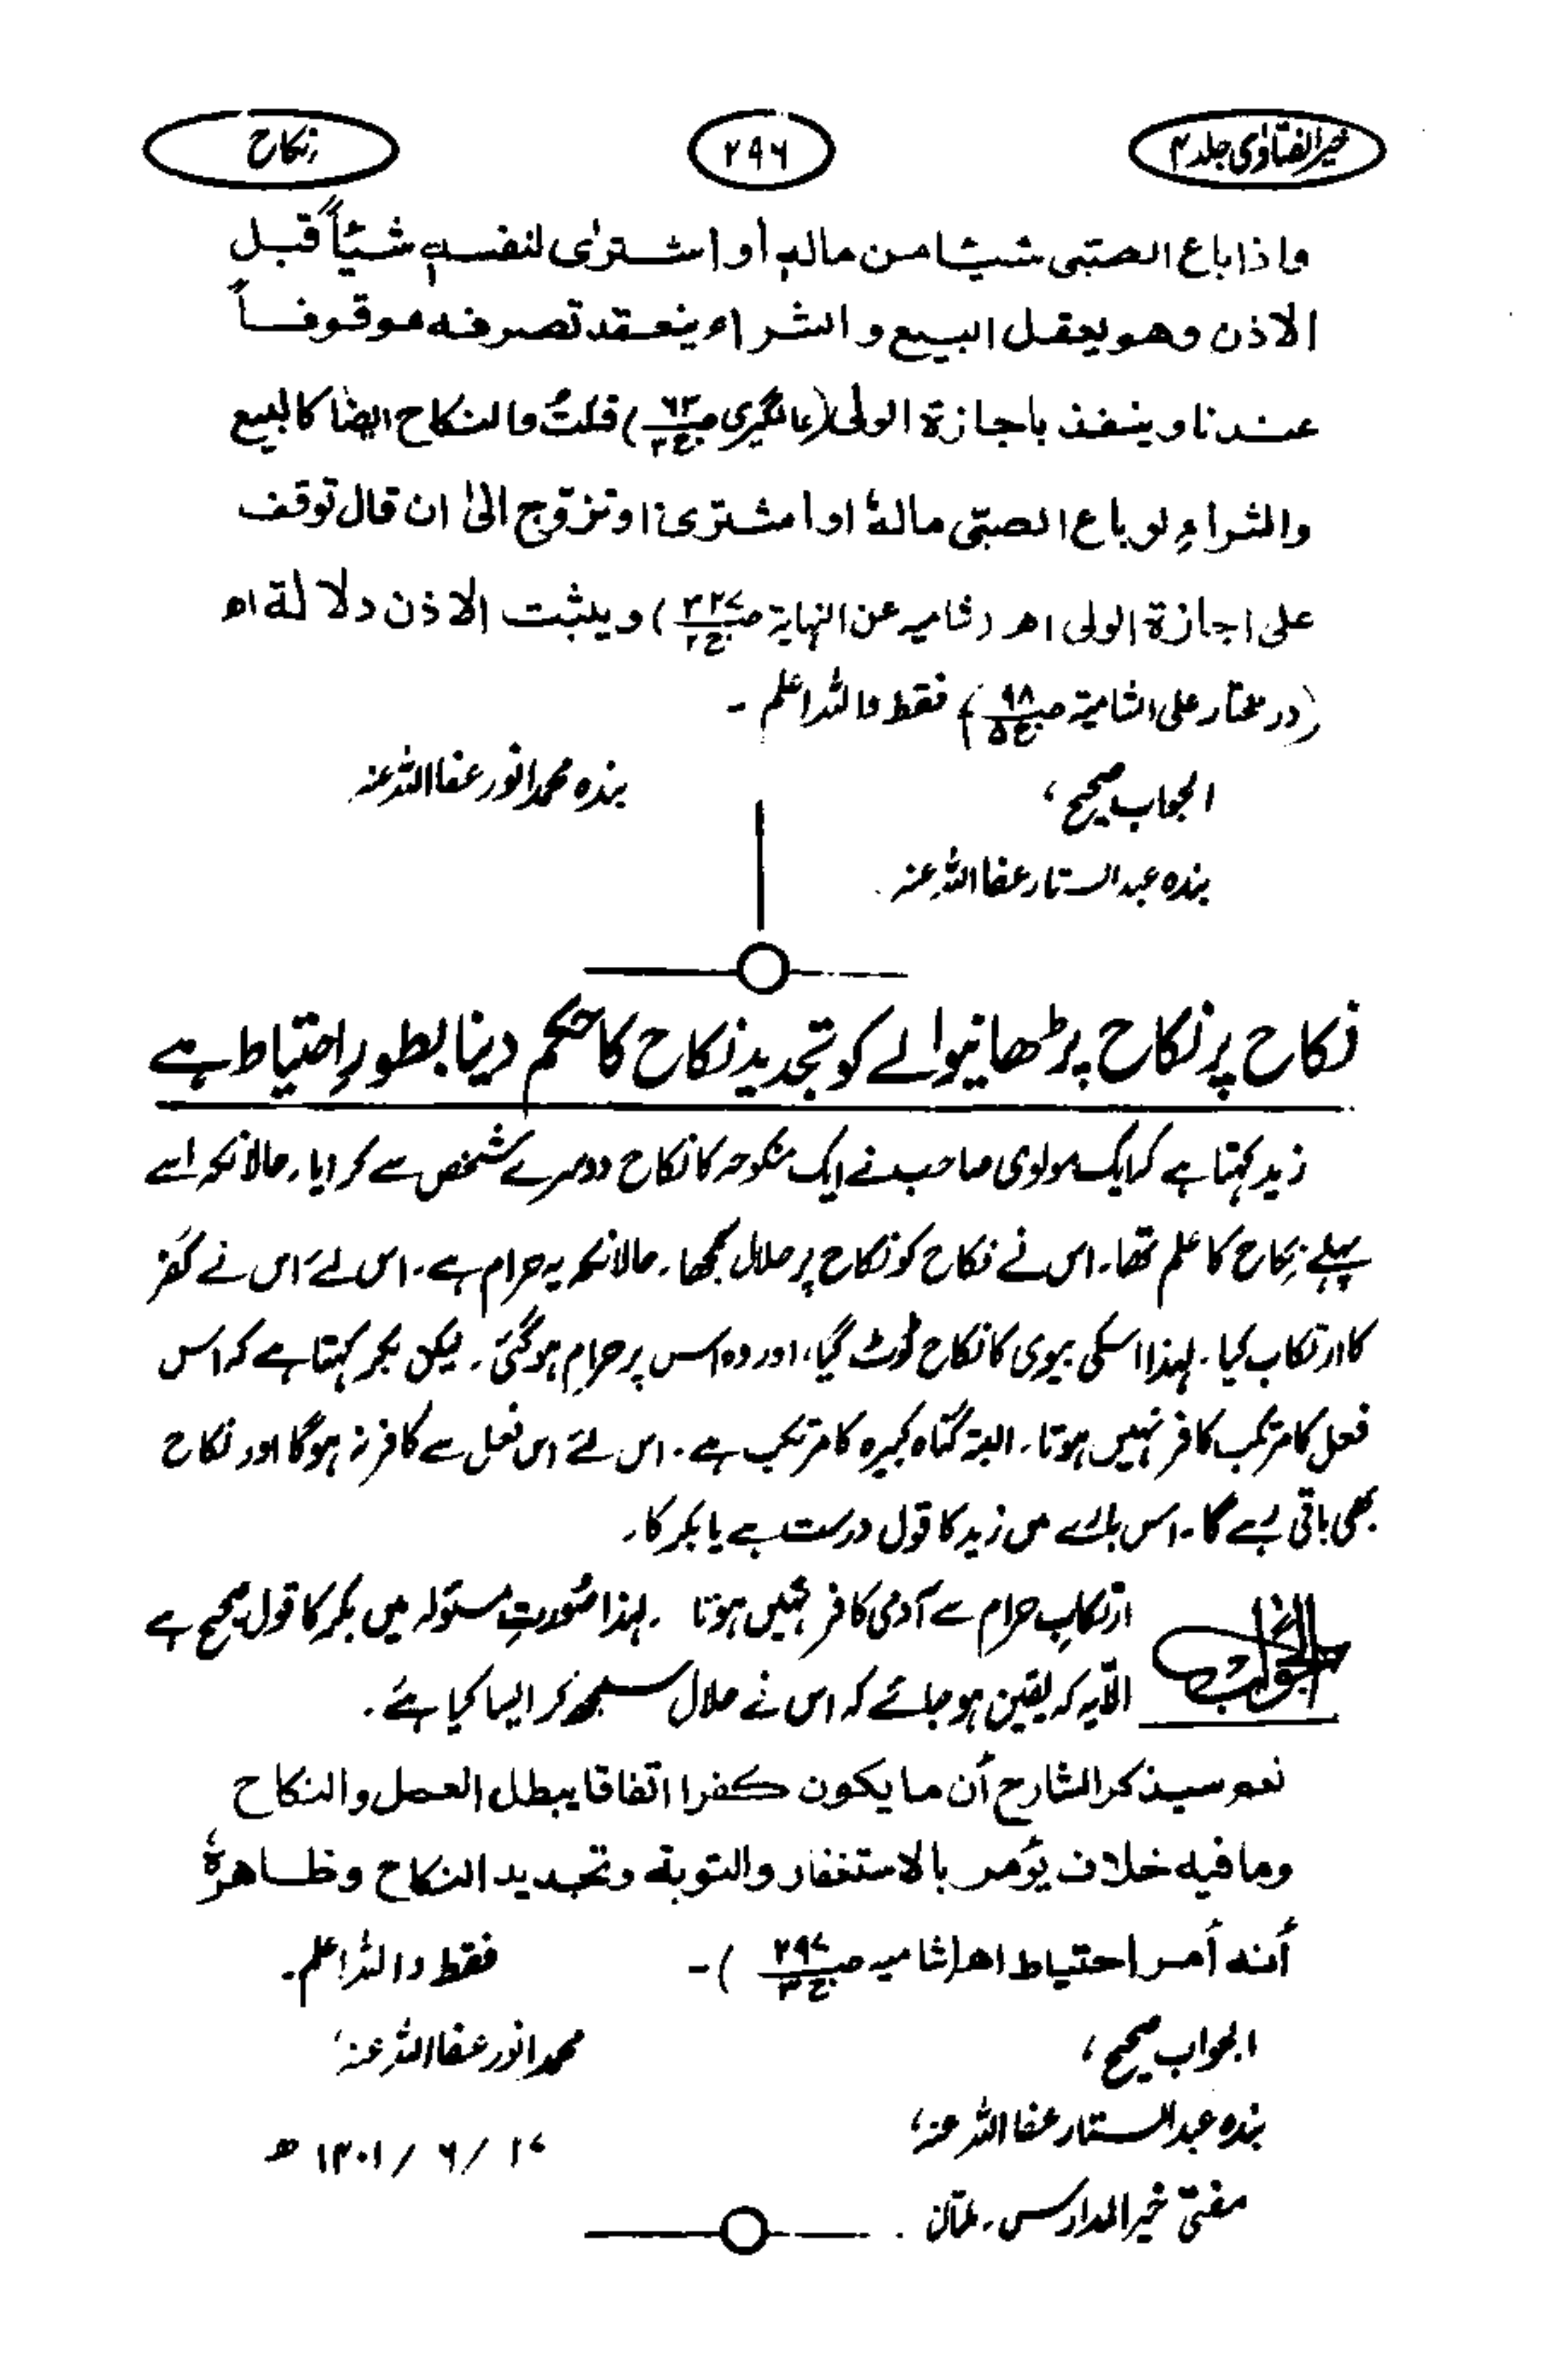 خیر الفتاوی جلد ۴
۲۹۶
نکاح
واذا باع الصبی شیئا من ماله أو اشتری لنفسه شیئاً قبل
الاذن وهو یعقل البیع والشراء ینعقد تصرفه موقوفاً
عندنا وینفذ باجازة الولی (عالمگیری ص۶۳ ج۳) قلتُ والنکاح ایضا کالبیع
والشراءِ لو باع الصبی مالهٗ او اشتری او تزوج الیٰ ان قال توقف
علی اجازة الولی اھ (شامیہ عن النہایة ص۳۲۷ ج۲) ویثبت الاذن دلالة اھ
(در مختار علی الشامیة ص۹۸ ج۵) فقط واللہ اعلم ۔
بندہ محمد انور عفا اللہ عنہ
الجواب صحیح ،
بندہ عبد الستار عفا اللہ عنہ
نکاح پر نکاح پڑھانیوالے کو تجدید نکاح کا حکم دینا بطورِ احتیاط ہے
زید کہتا ہے کہ ایک مولوی صاحب نے ایک منکوحہ کا نکاح دوسرے شخص سے کرایا، حالانکہ اسے
پہلے نکاح کا علم تھا۔ اس نے نکاح کو نکاح پر حلال سمجھا۔ حالانکہ یہ حرام ہے۔ اس لئے اس نے کفر
کا ارتکاب کیا۔ لہٰذا اسکی بیوی کا نکاح ٹوٹ گیا، اور وہ اس پر حرام ہوگئی۔ لیکن بکر کہتا ہے کہ اس
فعل کا مرتکب کافر نہیں ہوتا۔ البتہ گناہ کبیرہ کا مرتکب ہے۔ اس لئے اس فعل سے کافر نہ ہوگا اور نکاح
بھی باقی رہے گا۔ اس بارے میں زید کا قول درست ہے یا بکر کا۔
الجواب
ارتکابِ حرام سے آدمی کافر نہیں ہوتا ۔ لہذا صُورتِ مسئولہ میں بکر کا قول صحیح ہے
الّا یہ کہ یقین ہو جائے کہ اس نے حلال سمجھ کر ایسا کیا ہے۔
نعم سیذکر الشارح أن ما یکون کفرا اتفاقا یبطل العمل والنکاح
وما فیه خلاف یؤمر بالاستغفار والتوبة وتجدید النکاح وظاهرہٗ
أنه أمر احتیاط اھ (شامیہ ص۲۹۷ ج۳) ۔ فقط واللہ اعلم ۔
الجواب صحیح ، محمد انور عفا اللہ عنہ
بندہ عبد الستار عفا اللہ عنہ،
۱۷ / ۶ / ۱۴۰۱ ھ
مفتی خیر المدارس ۔ ملتان